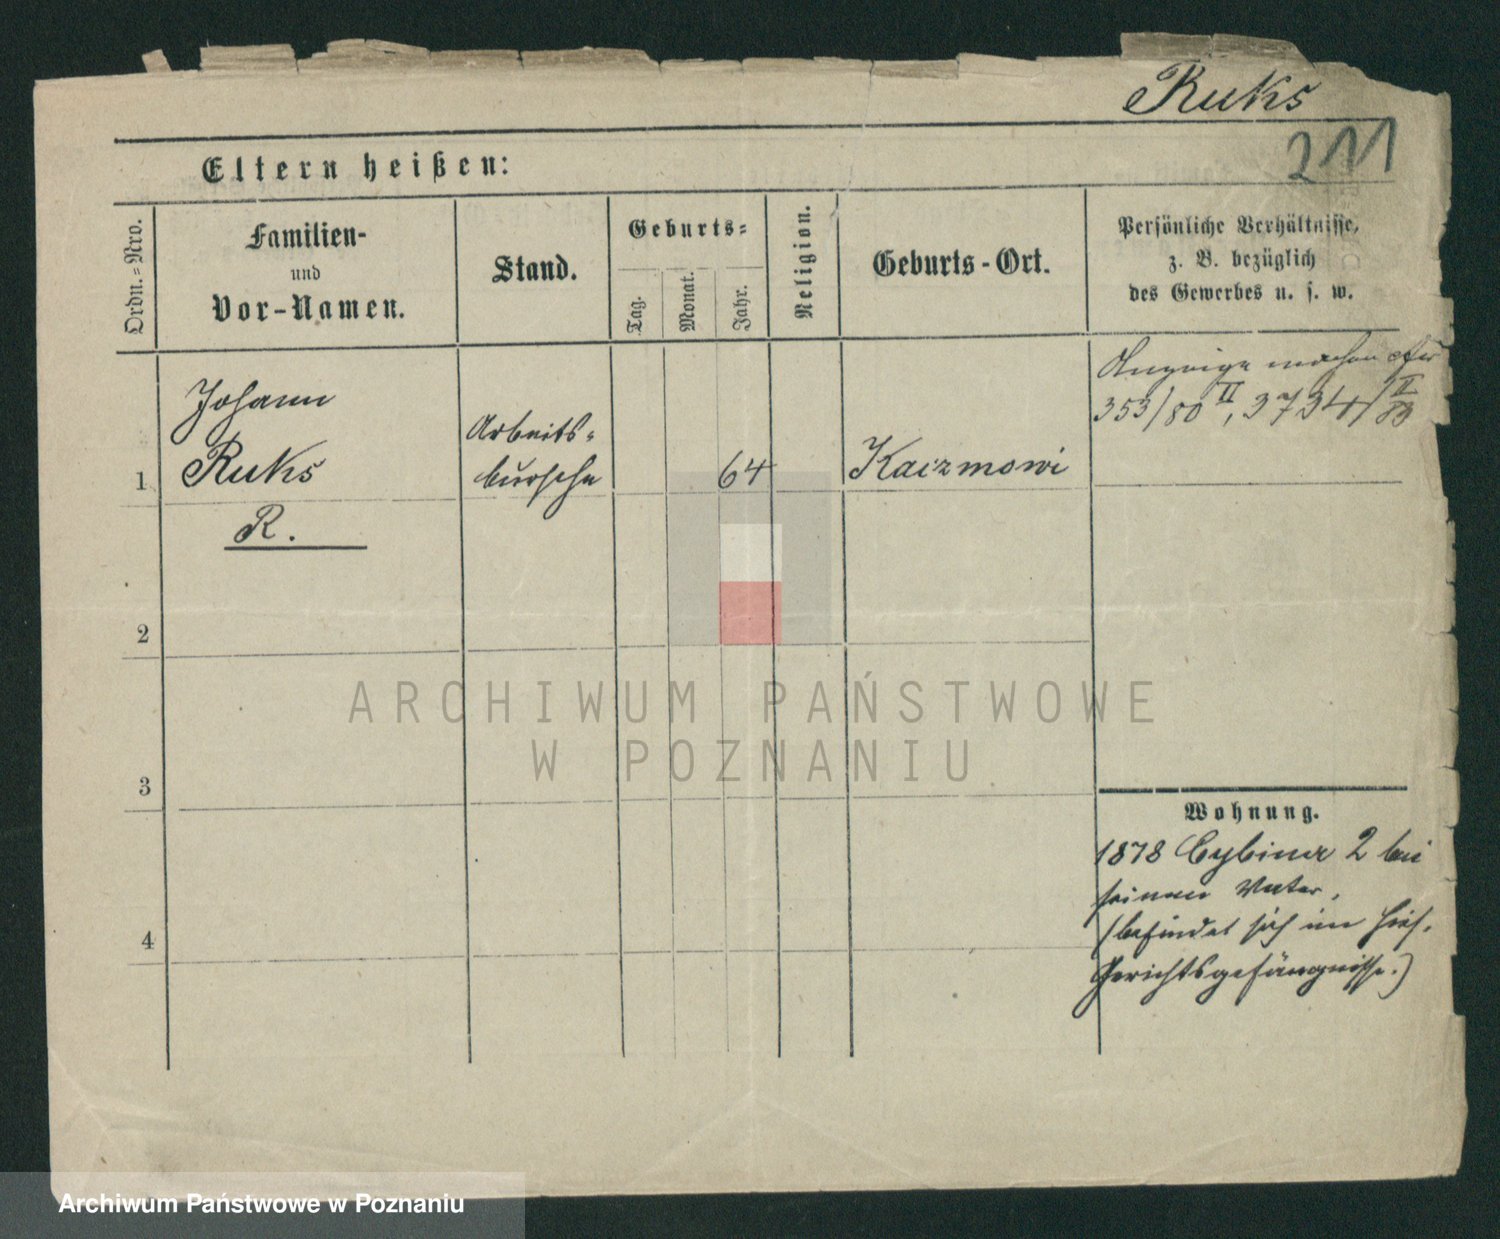 Ruks
211
Eltern heißen:
Ordn.=Nro.
Familien-
und
Vor-Namen.
Stand.
Geburts=
Tag.
Monat.
Jahr.
Religion.
Geburts-Ort.
Persönliche Verhältnisse,
z. B. bezüglich
des Gewerbes u. s. w.
Anzeige machen
353/80 II, 3734/II 83
Johann
Ruks
R.
Arbeits-
bursche
64
Kaczmowi
1
2
3
4
Wohnung.
1878 Cybiner 2 bei
seinem Vater,
(befindet sich im hies.
Gerichtsgefängnisse.)
ARCHIWUM PAŃSTWOWE
W POZNANIU
Archiwum Państwowe w Poznaniu